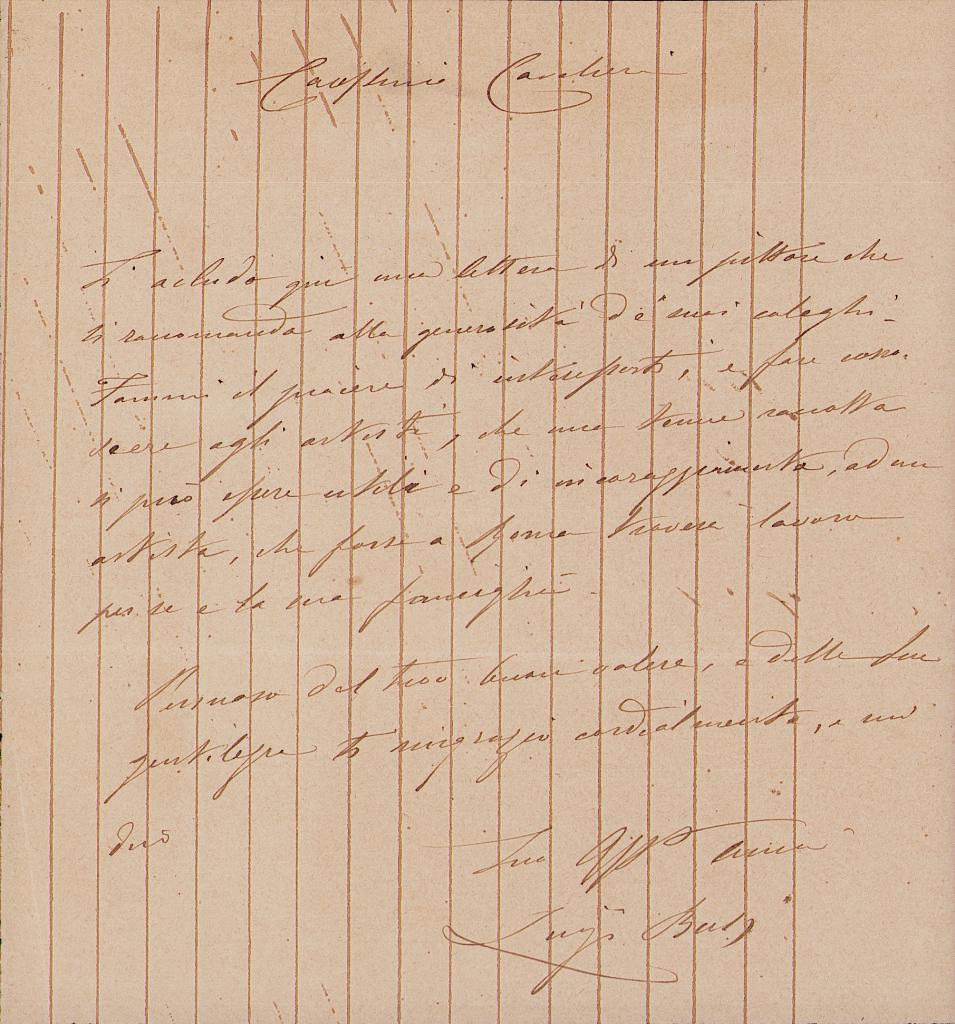 Carissimo Cavalieri
Ti acludo qui una lettera di un pittore che
si racomanda alla generosità de suoi coleghi.
Fammi il piacere di interessarti, e fare cono-
scere agli artisti, che una tenue racolta
si può essere utile e di incoraggimento, ad un
artista, che forse a Roma troverà lavoro
per se e la sua famiglia.
Persuaso del tuo buon volere, e delle tue
gentilezze ti ringrazio cordialmente, e mi
dico
Tuo Aff Amico
Luigi Busi